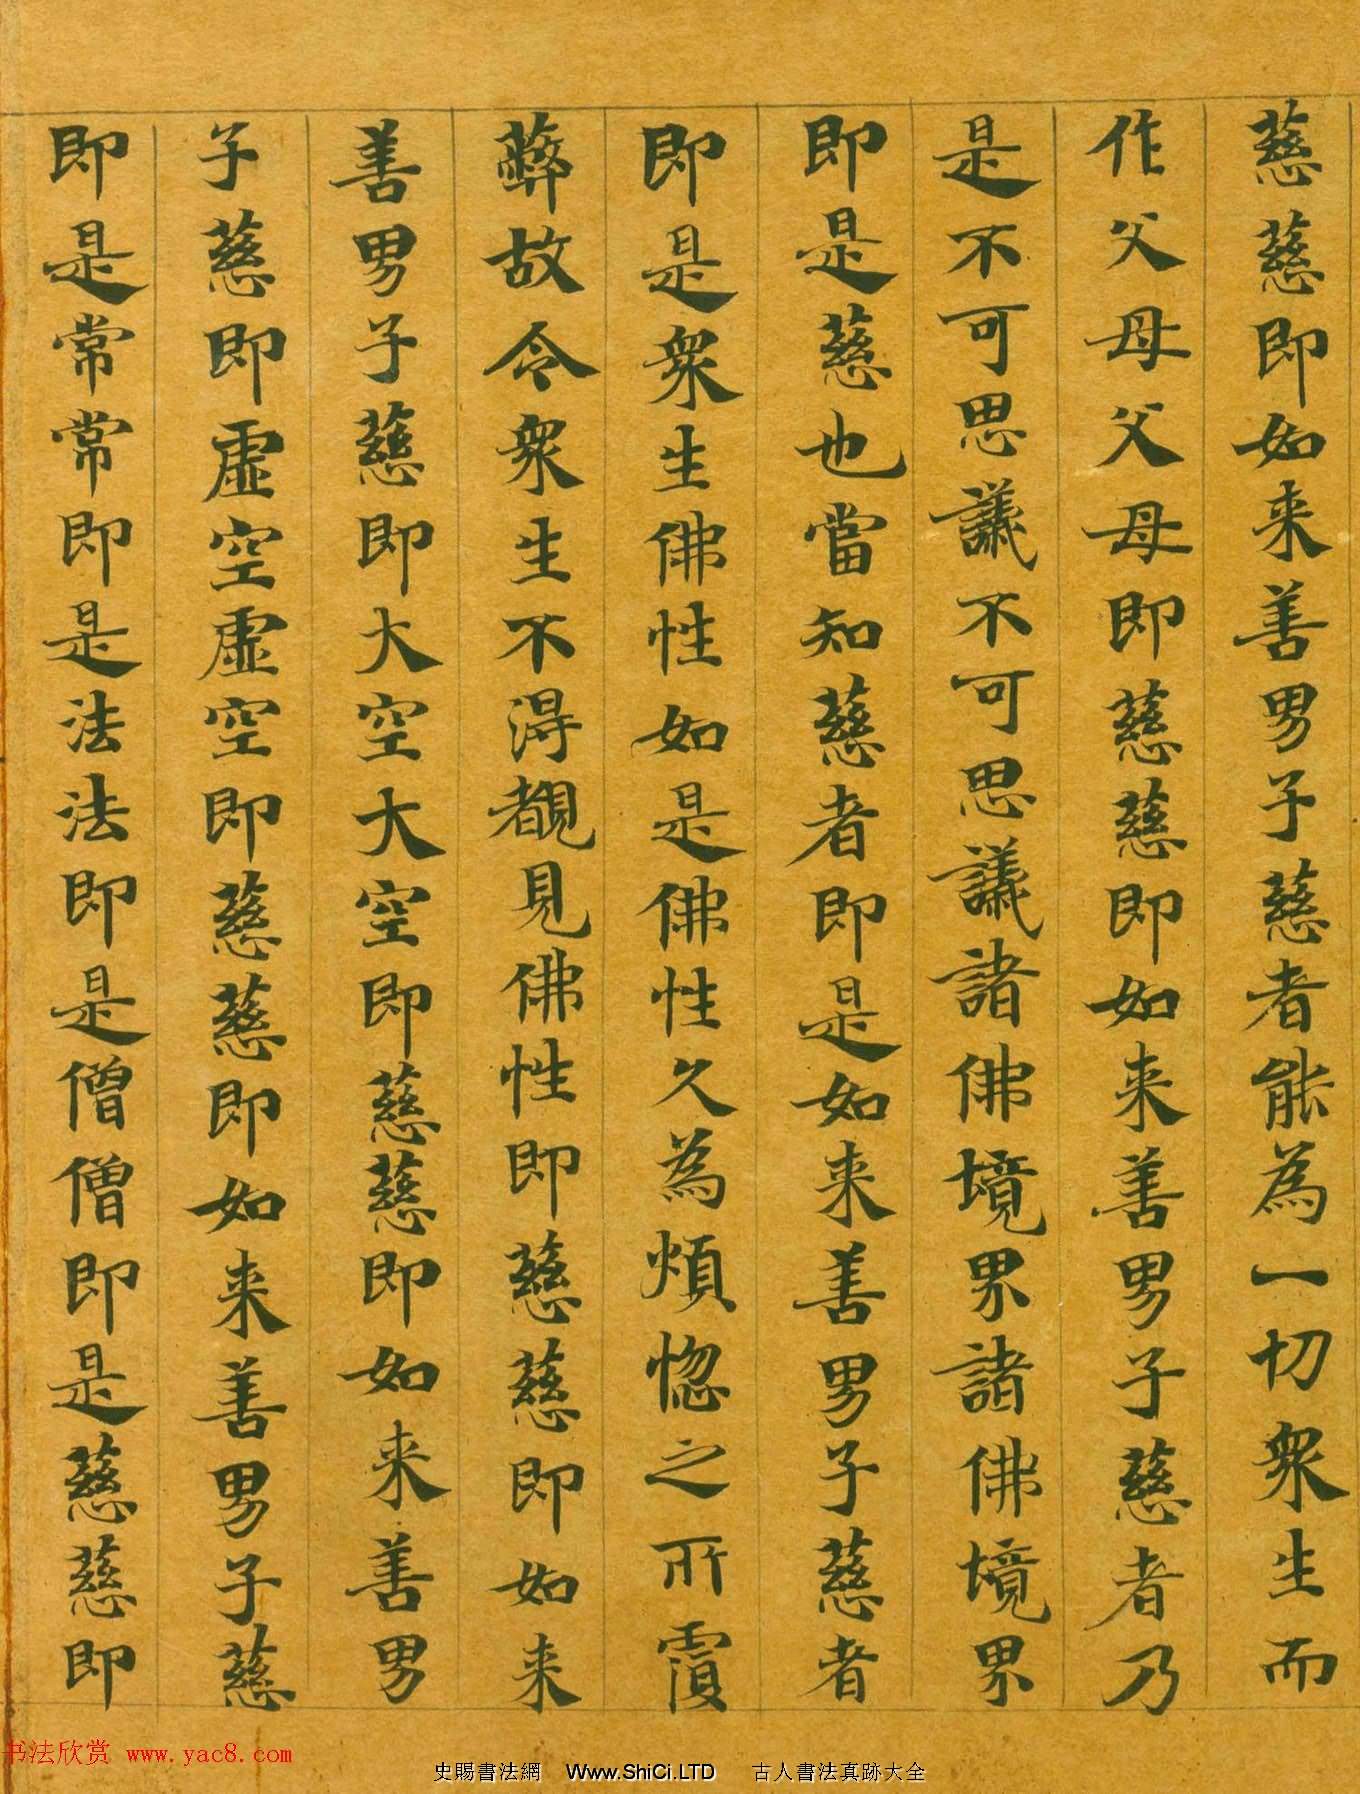 慈慈即如来善男子慈者能為一切衆生而
作父母父母即慈慈即如来善男子慈者乃
是不可思議不可思議諸佛境界諸佛境界
即是慈也當知慈者即是如来善男子慈者
即是衆生佛性如是佛性久為煩惚之所覆
蔽故令衆生不淂覩見佛性即慈慈即如来
善男子慈即大空大空即慈慈即如来善男
子慈即虛空虛空即慈慈即如来善男子慈
即是常常即是法法即是僧僧即是慈慈即
书法欣赏 www.yac8.com
史賜書法網 Www.ShiCi.LTD 古人書法真跡大全